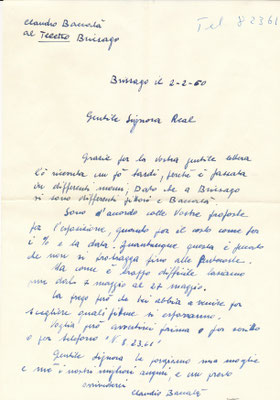 Claudio Baccalà
al Teatro Brissago
Tel. 8 23 61
Brissago il 2-2-60
Gentile Signora Real
Grazie per la vostra gentile lettera
l'ò ricevuta un pò tardi, perchè è passata
da differenti mani. Dato che a Brissago
ci sono differenti pittori e Baccalà.
Sono d'accordo colle vostre proposte
per l'esposizione, quando per il costo come per
i % e la data. Quantunque questa è peccato
che non si protragga fino alle Pentecoste.
Ma come è troppo difficile lasciamo
pure dal 7 maggio al 27 maggio.
La prego però che lei abbia a venire per
scegliere quali pitture si esporranno.
Voglia però avvertirmi prima o per scritto
o per telefono "8 23 61"
Gentile signora le porgiamo mia moglie
e me i nostri migliori auguri, e un presto
arrivederci
Claudio Baccalà